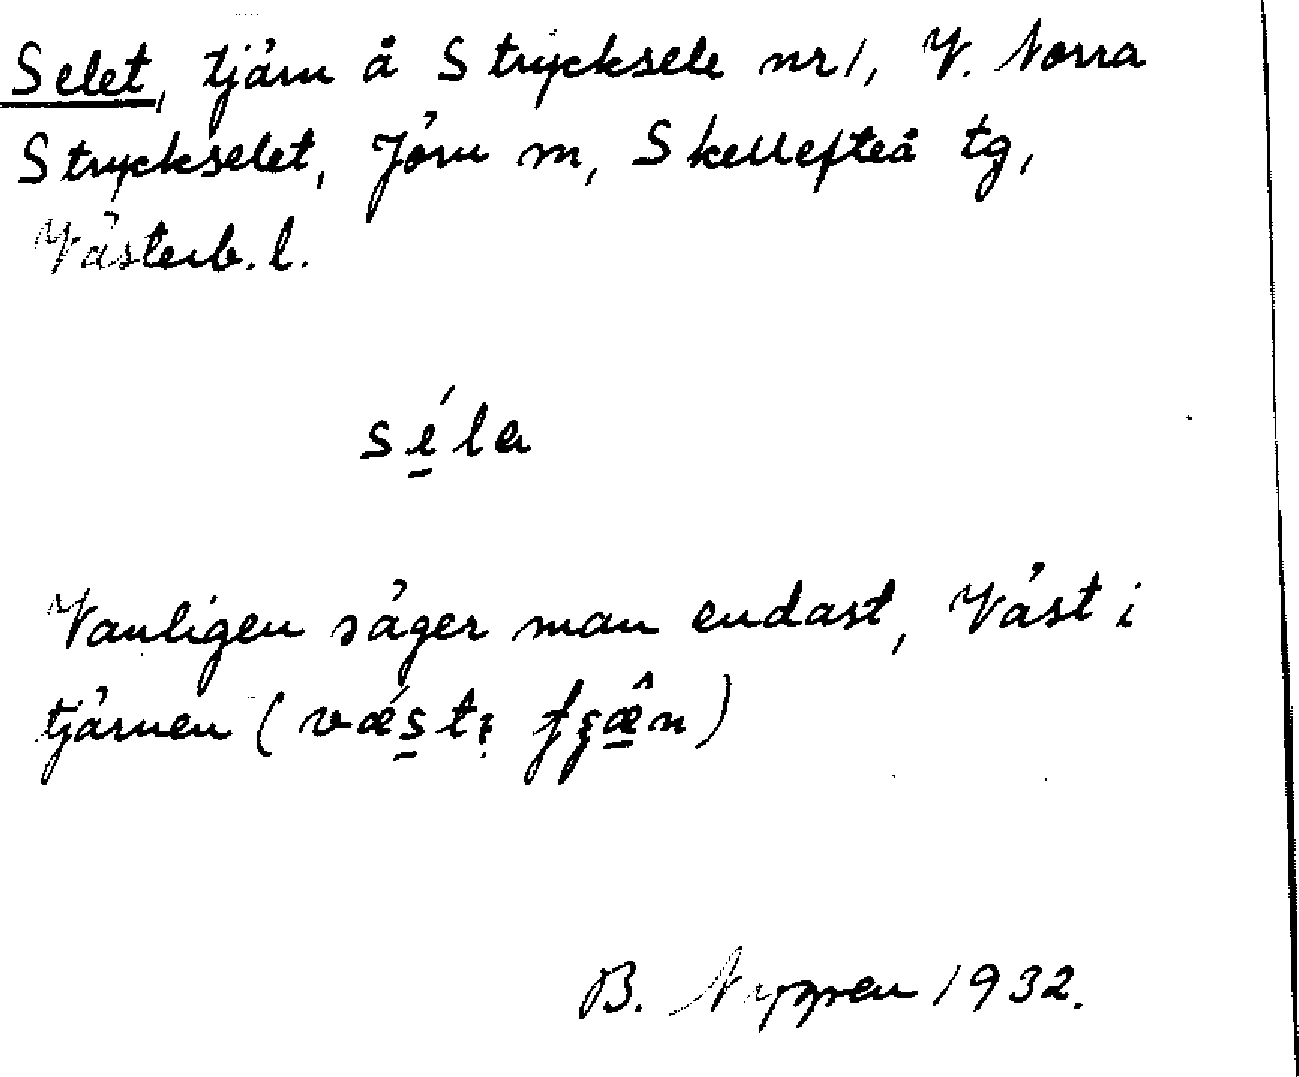 Selet, tjärn å Strycksele nr 1, V. Norra
Strycksele​t, Jörn sn, Skellefteå tg,
Västerb. l.
séla
Vanligen säger man endast, Väst i
tjärnen (vǽst
B. Nygren 1932.